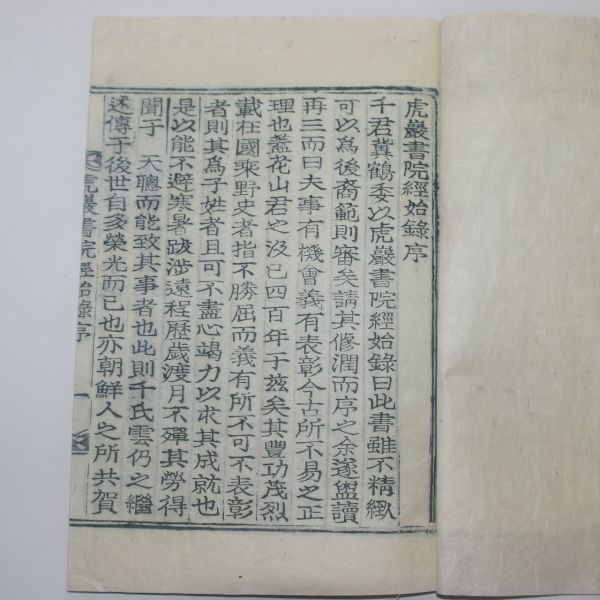 虎巖書院經始錄序
千君冀鶴委以虎巖書院經始錄曰此書雖不精緻
可以為後裔範則審矣請其修潤而序之余遂盥讀
再三而曰夫事有機會義有表彰今古所不易之正
理也盖花山君之沒已四百年于玆矣其豐功茂烈
載在國乘野史者指不勝屈而義有所不可不表彰
者則其為子姓者且可不盡心竭力以求其成就也
是以能不避寒暑跋涉遠程歷歲渡月不殫其勞得
聞于 天聰而能致其事者也此則千氏雲仍之繼
述傳于後世自多榮光而已也亦朝鮮人之所共賀
虎巖書院經始錄序 一